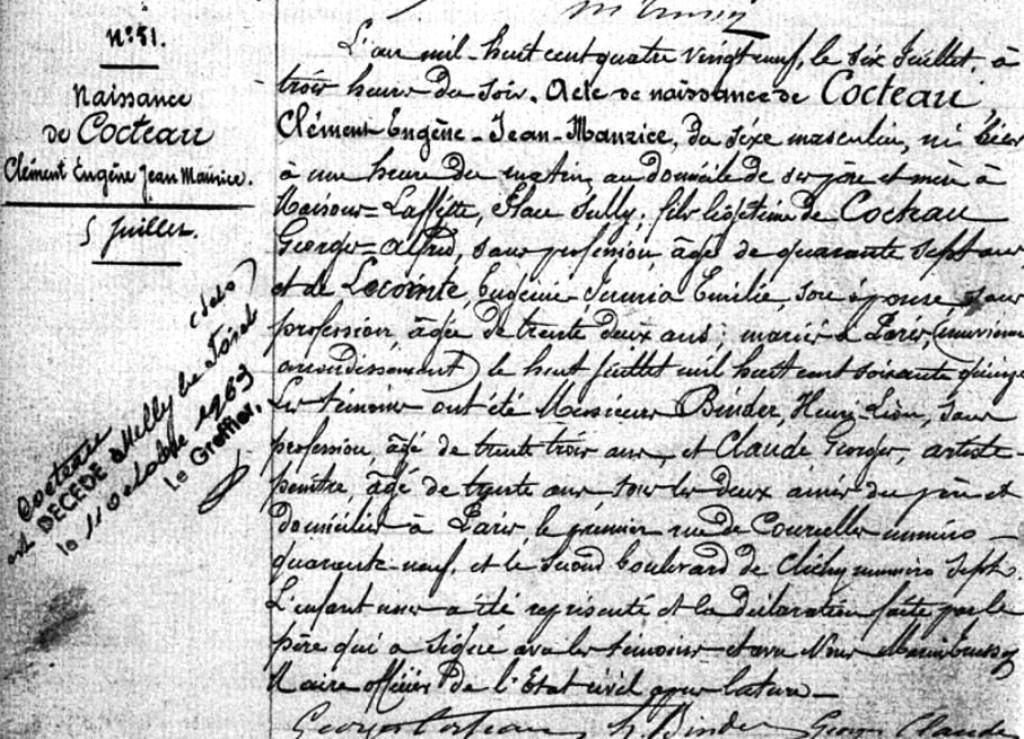 n: 51.
Naissance
de Cocteau
Clément Eugène Jean Maurice.
5 Juillet.
Cocteau
est DECEDE à Milly la Forêt
le 11 octobre 1963
le Greffier.
L'an mil-huit cent quatre vingt neuf, le six Juillet, à
trois heures du soir. Acte de naissance de Cocteau
Clément-Eugène-Jean-Maurice, du sexe masculin, né hier
à une heure du matin, au domicile de ses père et mère à
Maisons=Laffitte, Place Sully; fils légitime de Cocteau
Georges=Alfred, sans profession, âgé de quarante sept ans,
et de Lecomte, Eugénie-Junia Emilie, son épouse, sans
profession, âgée de trente deux ans; mariés à Paris, (neuvième
arrondissement) le huit Juillet mil huit cent soixante quinze
Les témoins ont été Messieurs Binder, Henri-Léon, sans
profession, âgé de trente trois ans, et Claude Georges, artiste-
peintre, âgé de trente ans tous les deux amis du père et
domiciliés à Paris, le premier rue de Courcelles numéro
quarante-neuf, et le second boulevard de Clichy numéro sept.
L'enfant nous a été représenté et la déclaration faite par le
père qui a signé avec les témoins et avec Nous
Maire officier de l'Etat civil après lecture
Georges Cocteau H. Binder Georges Claude